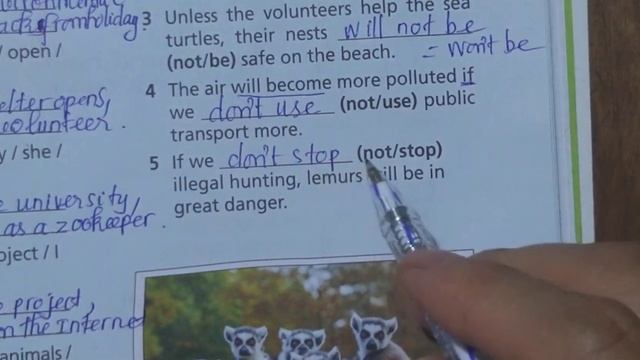 3 Unless the volunteers help the sea
turtles, their nests will not be
(not/be) safe on the beach. = won't be
4 The air will become more polluted if
we don't use (not/use) public
transport more.
5 If we don't stop (not/stop)
illegal hunting, lemurs will be in
great danger.
from holiday.
/ open /
shelter opens,
volunteer.
y / she /
university,
as a zookeeper.
oject / I
project,
on the Internet
animals /